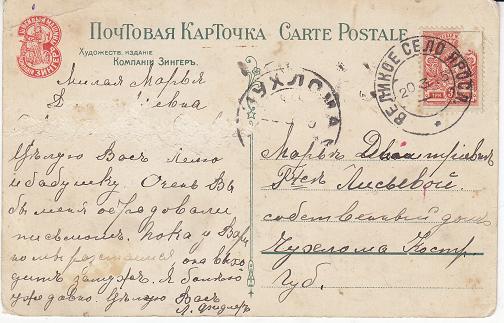 Почтовая Карточка Carte Postale
Художеств. издание
Компании Зингеръ.
Милая Марья
Цѣлую Васъ Лелю
и бабушку. Очень Вы
бы меня обрадовали
письмомъ. Пока у
она выхо-
дитъ замужъ. Я болѣю
уже давно. Цѣлую Васъ
Л.
ЧУХЛОМА
ВЕЛИКОЕ СЕЛО ЯРОСЛ.
20
Марьѣ Дмитріевнѣ
Лисьевой
собственный домъ
Чухлома Костр.
Губ.